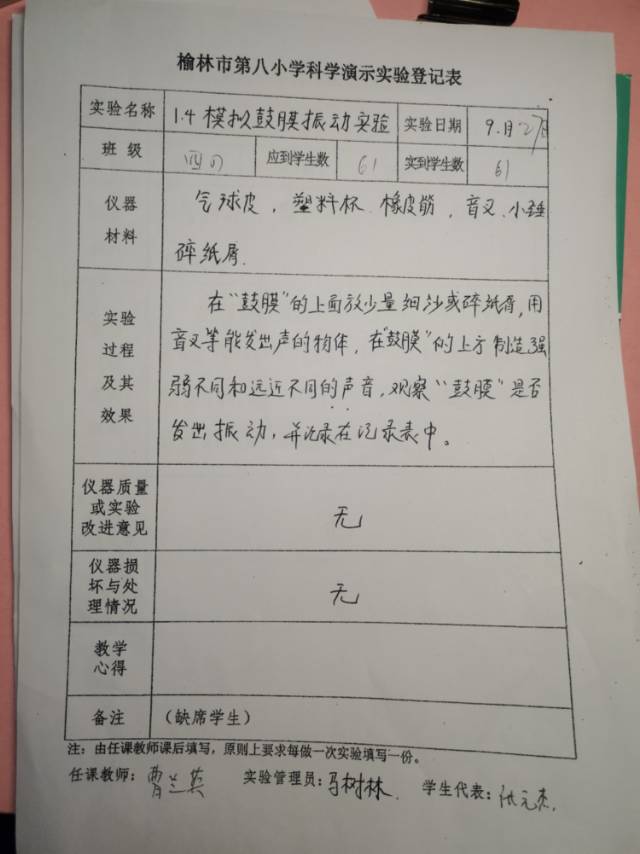 榆林市第八小学科学演示实验登记表
实验名称 1.4 模拟鼓膜振动实验 实验日期 9.月27日
班 级 四 应到学生数 61 实到学生数 61
仪器
材料
气球皮，塑料杯、橡皮筋，音叉、小锤
碎纸屑.
实验
过程
及其
效果
在“鼓膜”的上面放少量细沙或碎纸屑，用
音叉等能发出声的物体，在“鼓膜”的上方制造强
弱不同和远近不同的声音，观察“鼓膜”是否
发出振动，并记录在记录表中。
仪器质量
或实验
改进意见
无
仪器损
坏与处
理情况
无
教学
心得
备注 （缺席学生）
注：由任课教师课后填写，原则上要求每做一次实验填写一份。
任课教师：曹兰英 实验管理员：马树林. 学生代表：